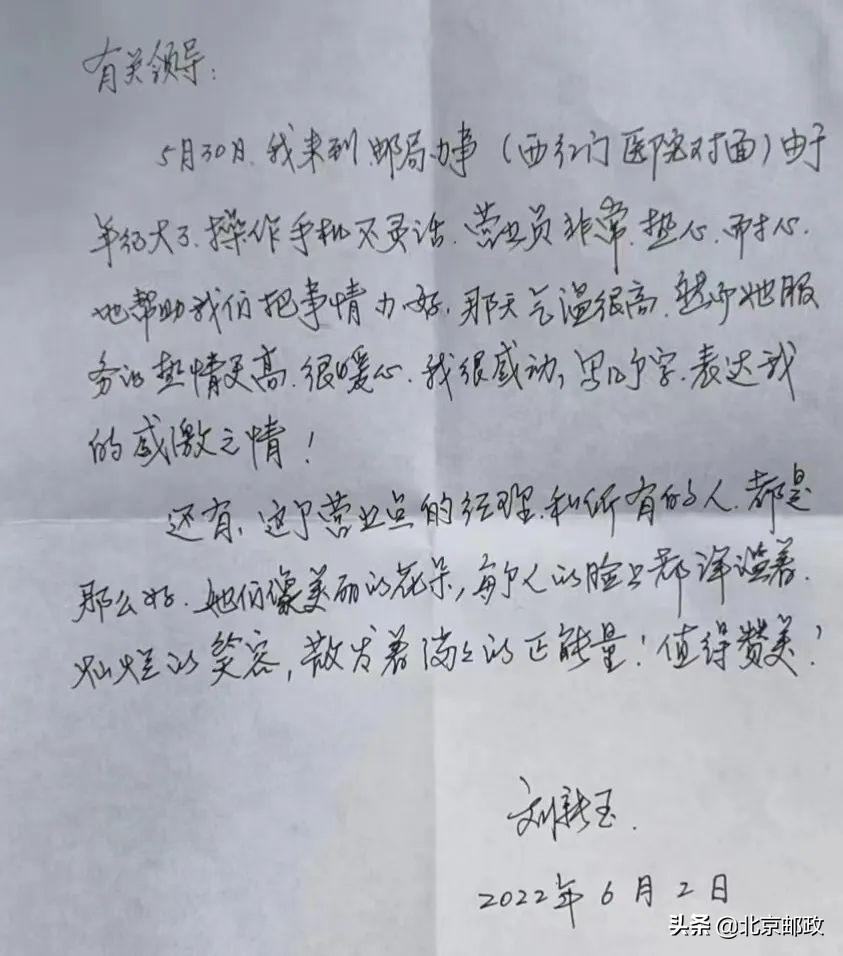 有关领导：
5月30日、我来到邮局办事（西红门医院对面）由于
年纪大了、操作手机不灵活、营业员非常热心、耐心、
她帮助我们把事情办好、那天气温很高、她服
务的热情更高、很暖心、我很感动，写几个字、表达我
的感激之情！
还有，这个营业点的经理、和所有的人、都是
那么好、她们像美丽的花朵，每个人的脸上都洋溢着、
灿烂的笑容，散发着满满的正能量！值得赞美！
刘新玉、
2022年6月2日
头条 @北京邮政